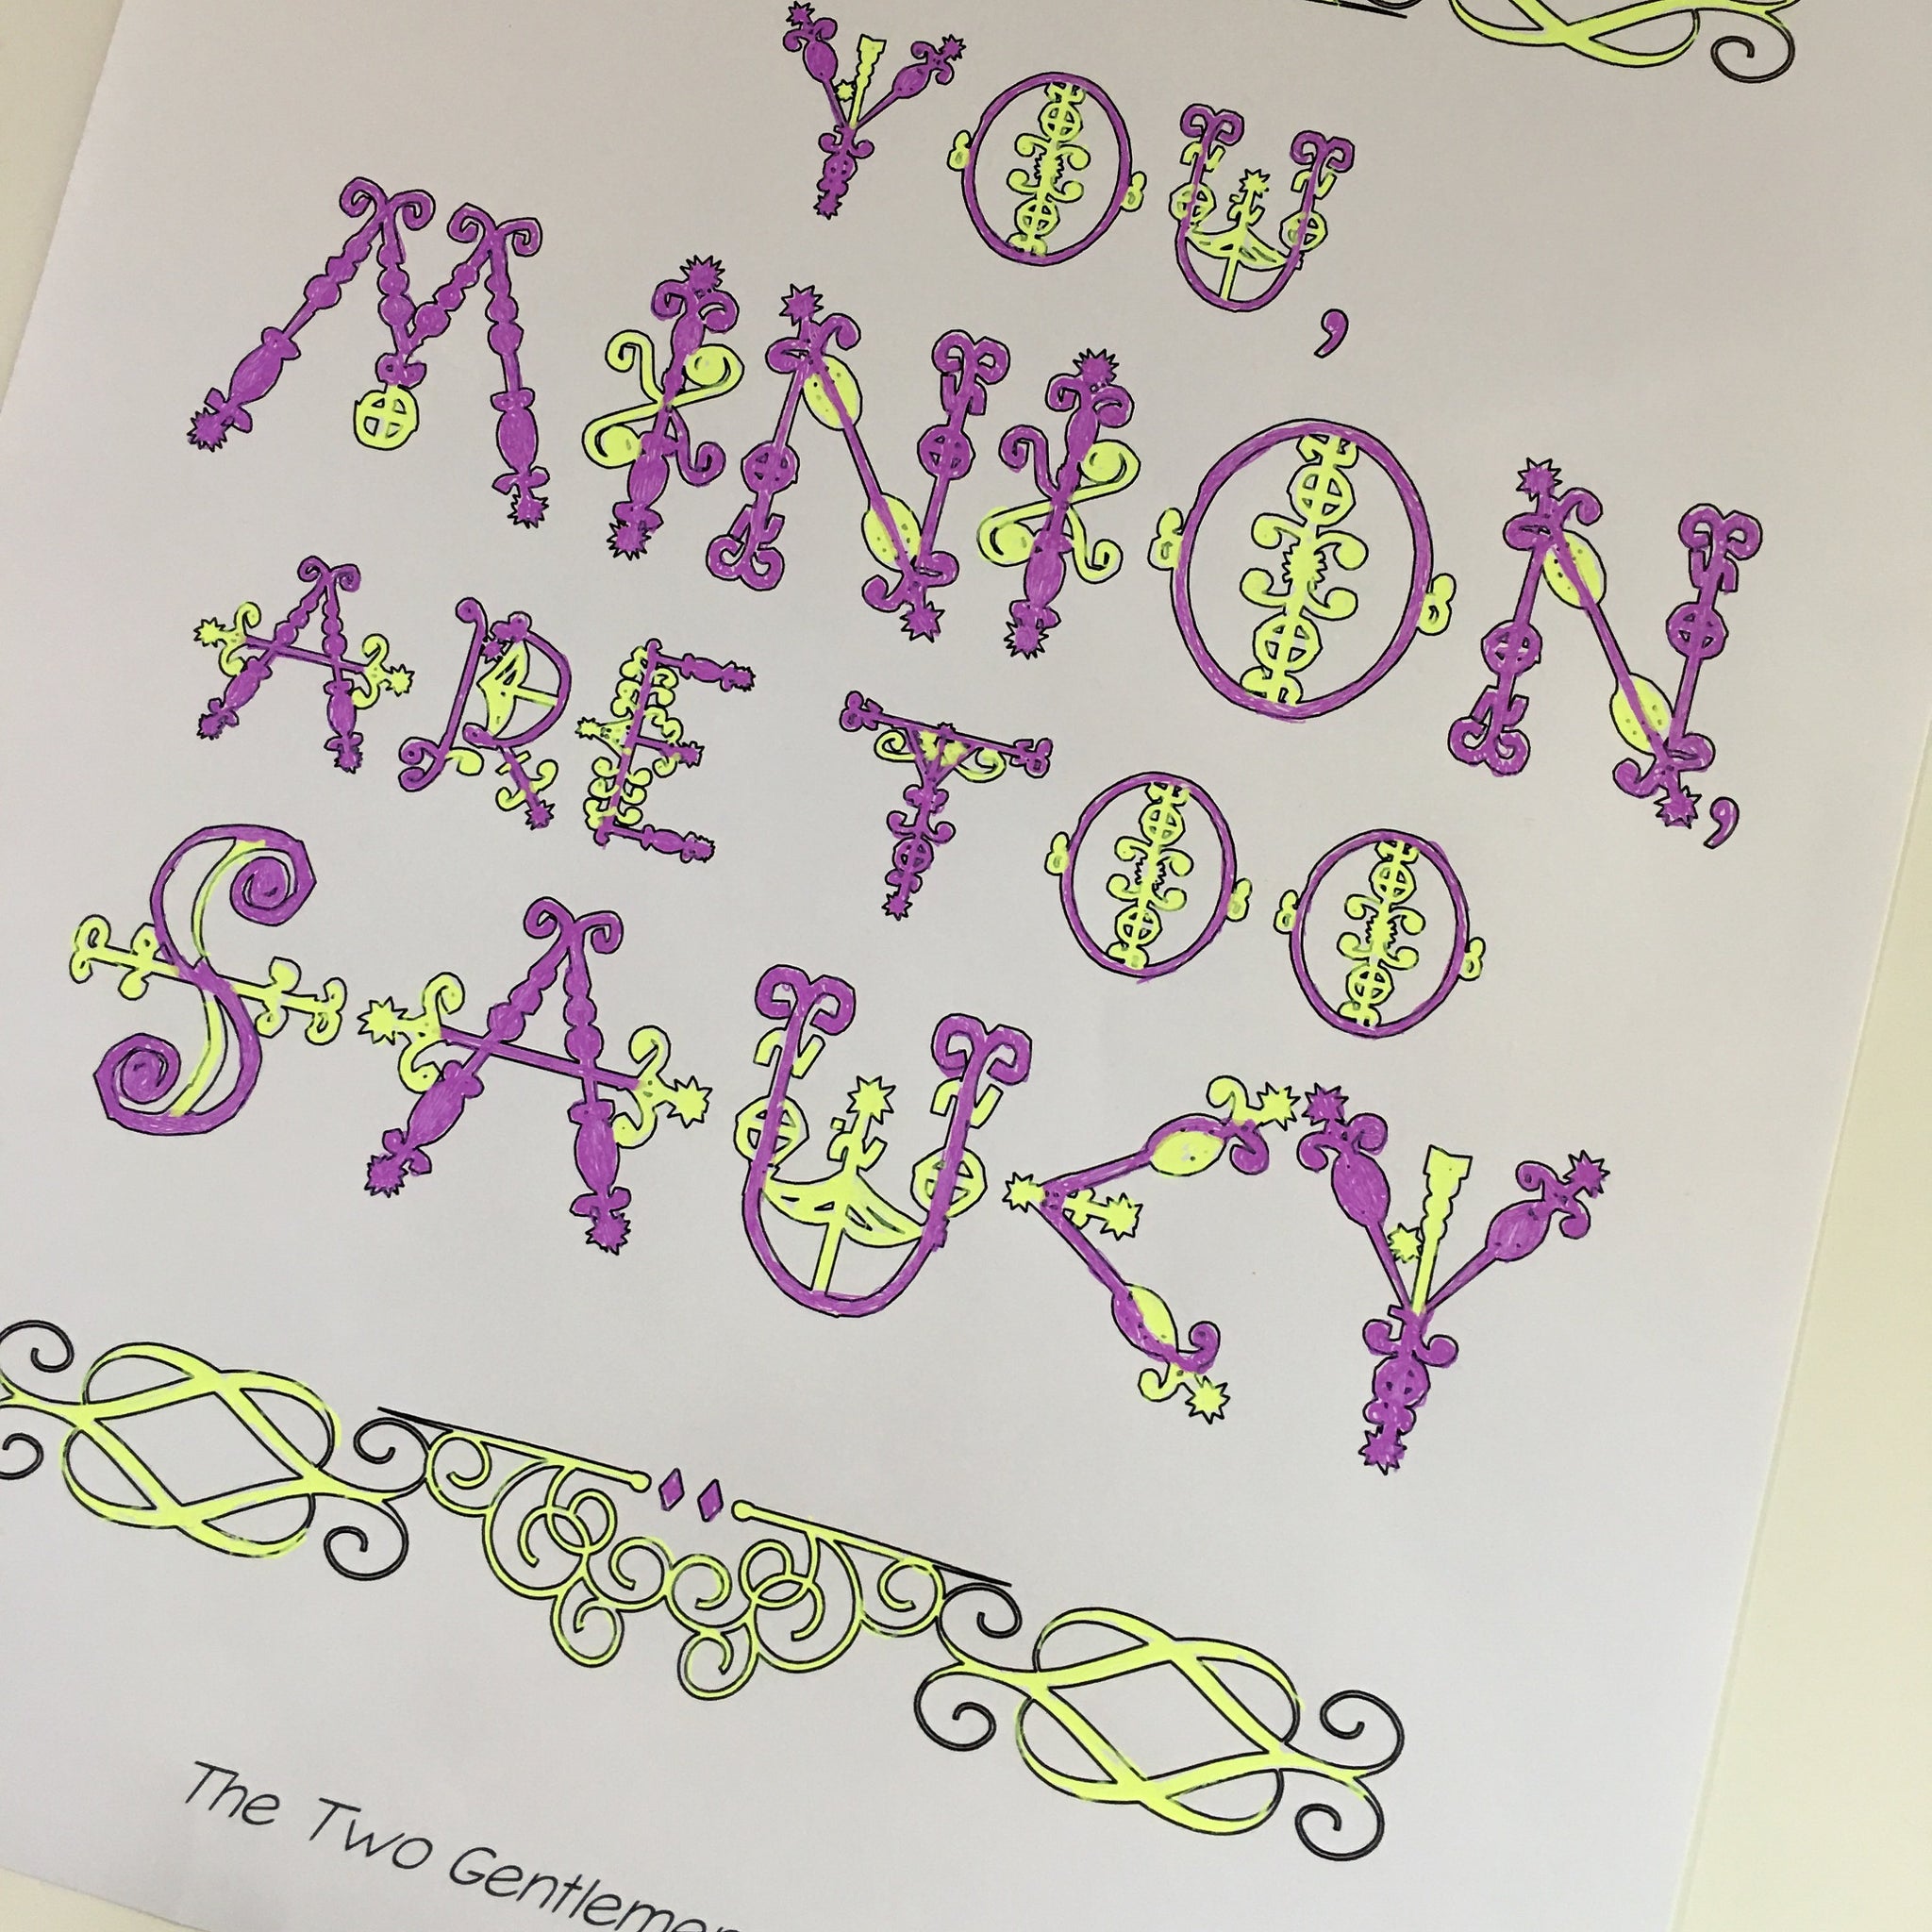 YOU,
MINION,
ARE TOO
SAUCY
The Two Gentlemen